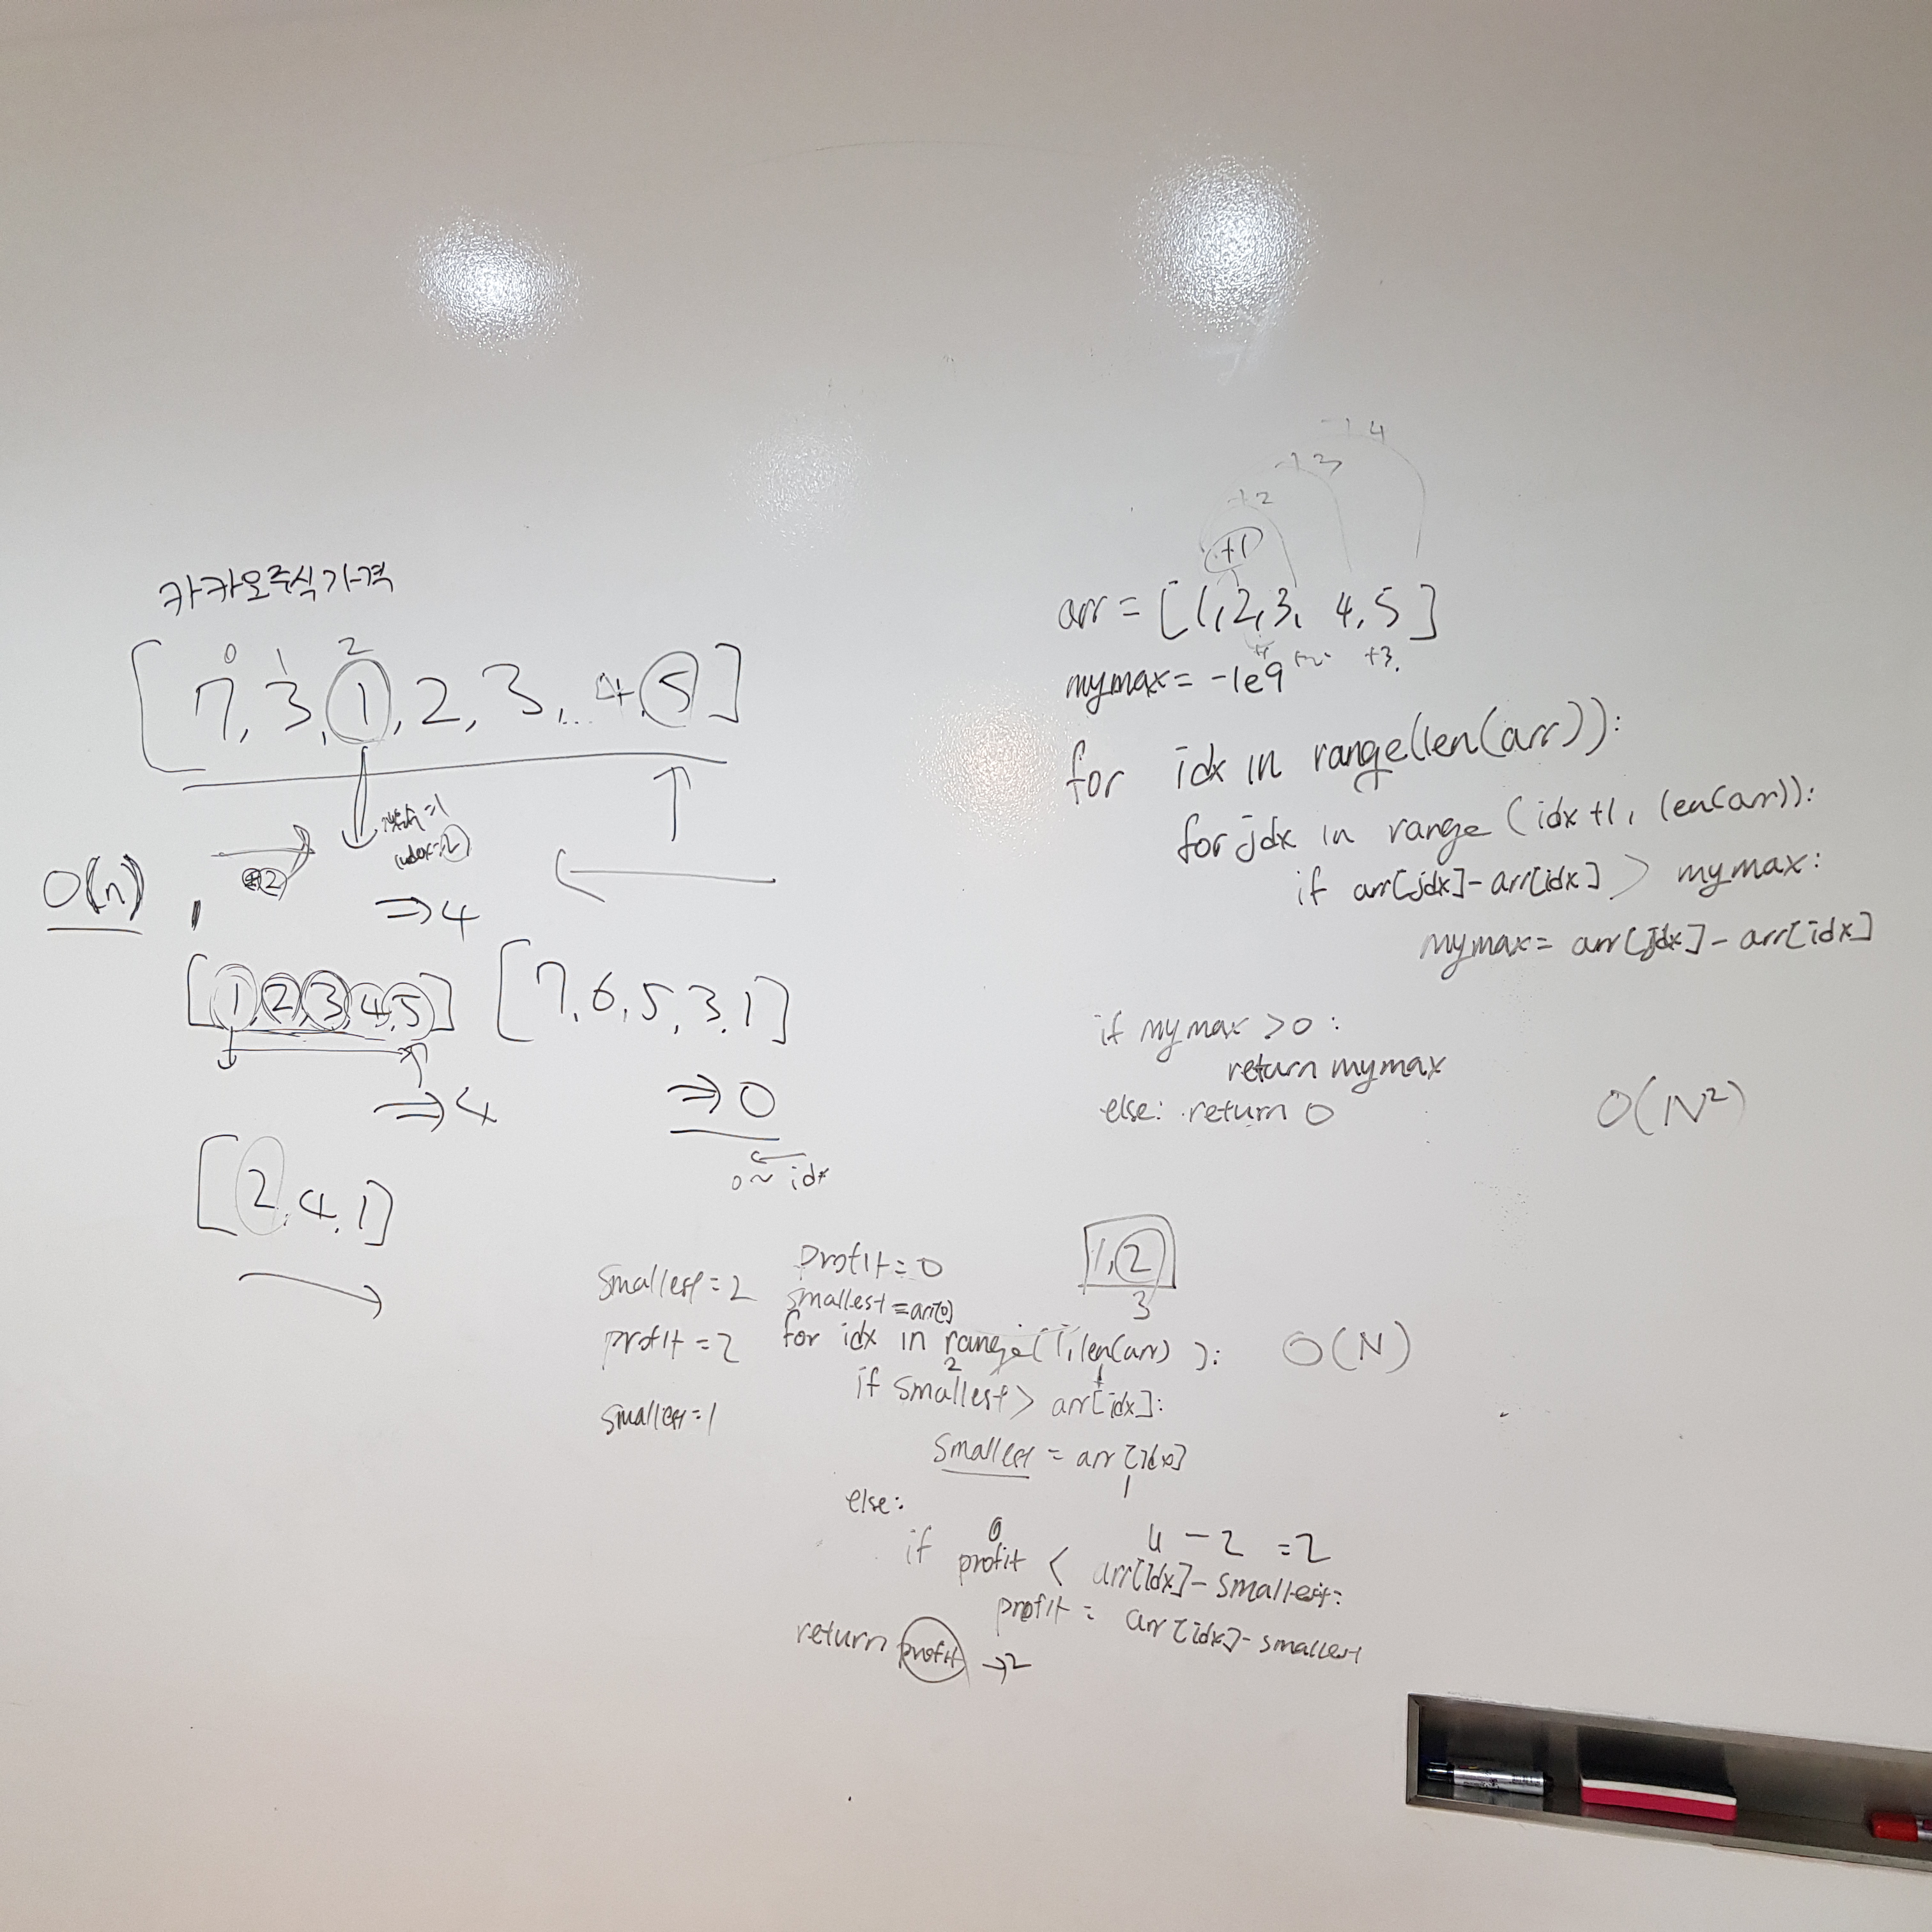 카카오주식가격
0 1 2
[7, 3, 1, 2, 3, ... 4, 5]
index=2
2
O(n),
⇒4
[1, 2, 3, 4, 5] [7, 6, 5, 3, 1]
⇒4
⇒0
0~idx
[2, 4, 1]
4
3
+2
+1
arr = [1, 2, 3, 4, 5]
+3
mymax = -1e9
for idx in range(len(arr)):
for jdx in range(idx+1, len(arr)):
if arr[jdx]-arr[idx] > mymax:
mymax = arr[jdx] - arr[idx]
if mymax > 0:
return mymax
else: return 0
O(N²)
smallest = 2
profit = 2
smallest = 1
1, 2
3
profit = 0
smallest = arr[0]
for idx in range(1, len(arr)):
O(N)
2 1
if smallest > arr[idx]:
smallest = arr[idx]
1
else:
0 4 - 2 = 2
if profit < arr[idx]-smallest:
profit = arr[idx]-smallest
return profit →2